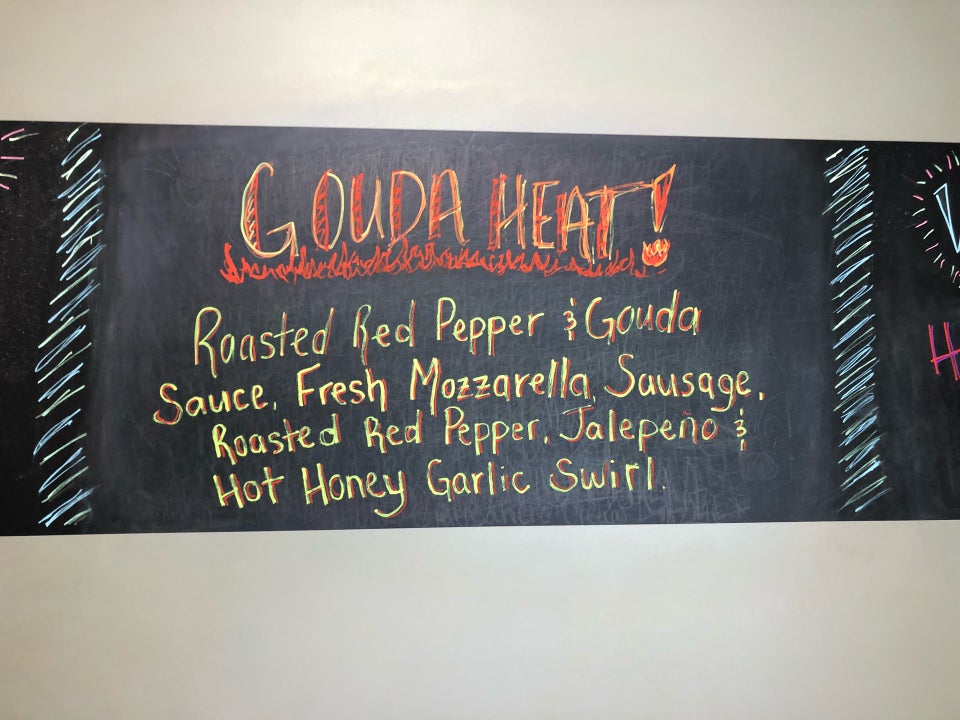 GOUDA HEAT!
Roasted Red Pepper & Gouda
Sauce, Fresh Mozzarella, Sausage,
Roasted Red Pepper, Jalepeño &
Hot Honey Garlic Swirl.